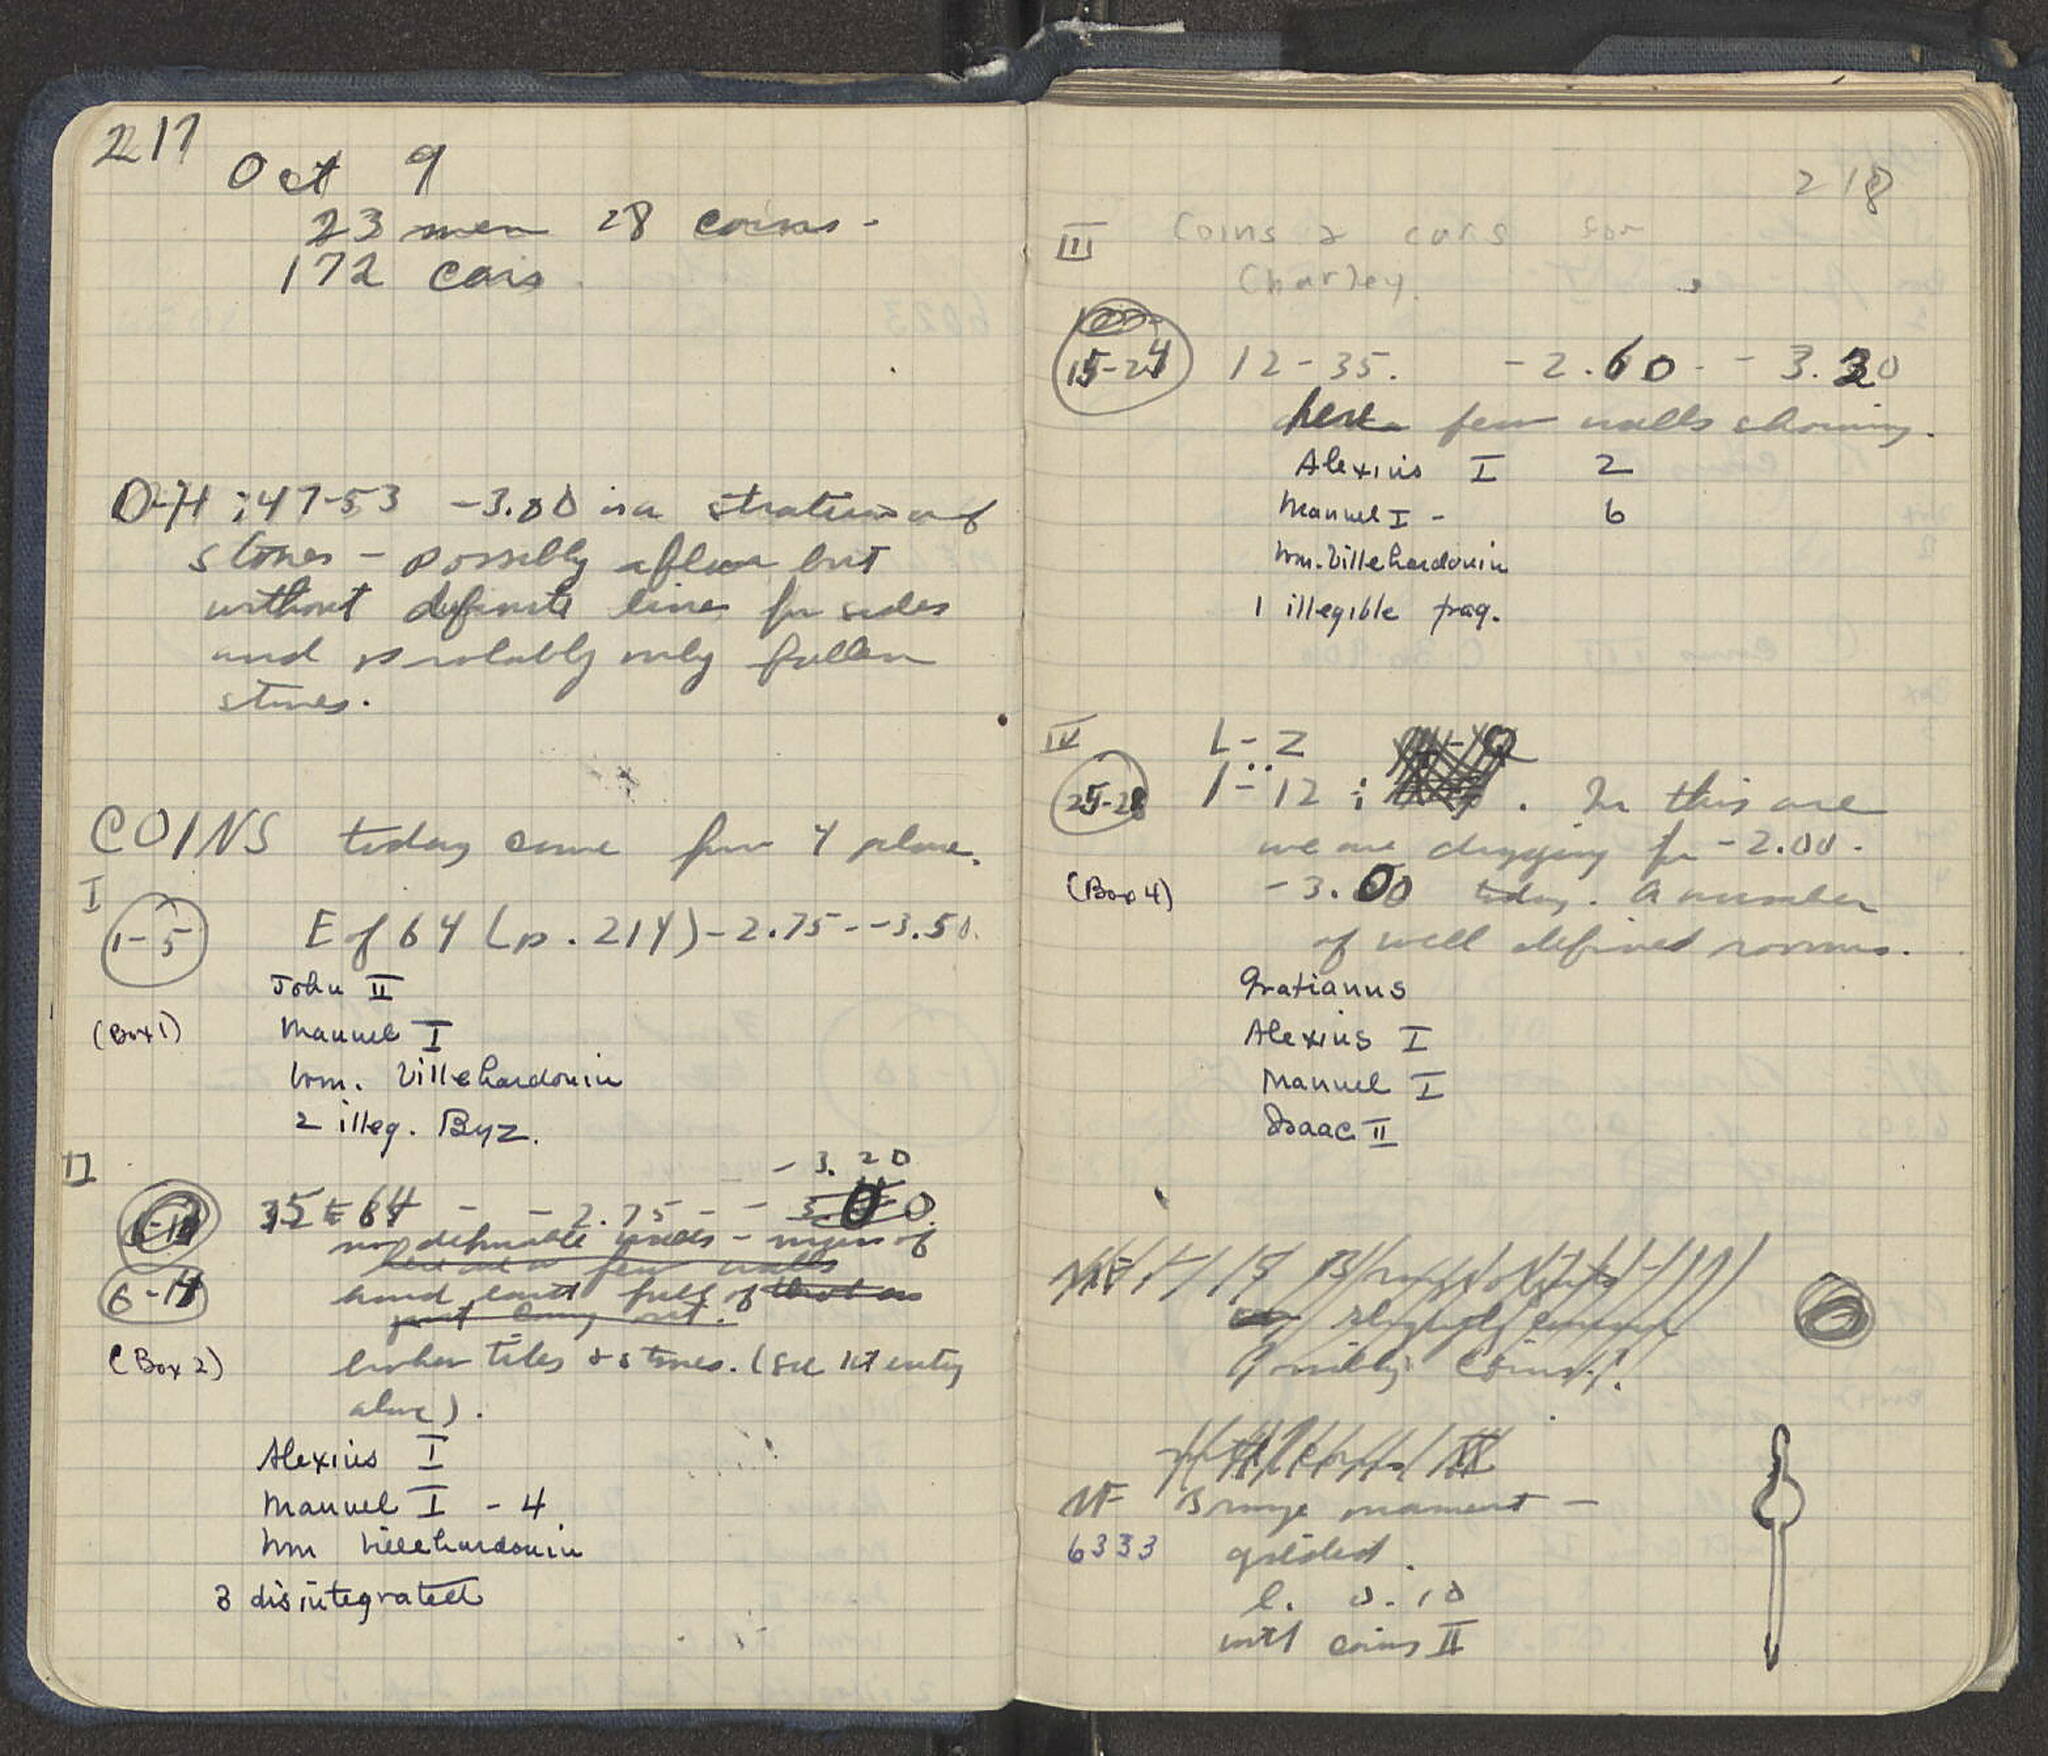 217
Oct 9
23 men 28 coins -
172 cars
O-H ; 47-53 -3.00 is a stratum of
stones - possibly a floor but
without definite lines for sides
and probably only fallen
stones.
COINS today come from 4 places.
I
1-5
E of 64 (p. 214) -2.75 - -3.50.
John II
(Box 1)
Manuel I
Wm. Villehardouin
2 illeg. Byz.
II
-3.20
35-64 - -2.75 - -
no definable walls - mass of
here are a few walls
6-14
hard earth full of that are
just coming out.
(Box 2)
broken tiles & stones. (see 1st entry
above).
Alexius I
Manuel I - 4
Wm Villehardouin
3 disintegrated
218
III
Coins & cars for
Charley.
15-24
12-35. -2.60 - -3.20
few walls showing.
Alexius I 2
Manuel I - 6
Wm. Villehardouin
1 illegible frag.
IV
L-Z
25-28
1-12 ; . In this area
we are digging from -2.00 -
(Box 4)
-3.00 today. A number
of well defined rooms.
Gratianus
Alexius I
Manuel I
Isaac II
Bronze
slightly
Possibly coins!
with coins II
MF Bronze ornament -
6333 gilded.
l. 0.10
with coins II